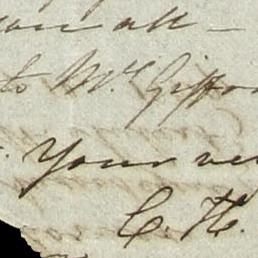 you all —
to Mr. Giffor
Your ve
C. H.